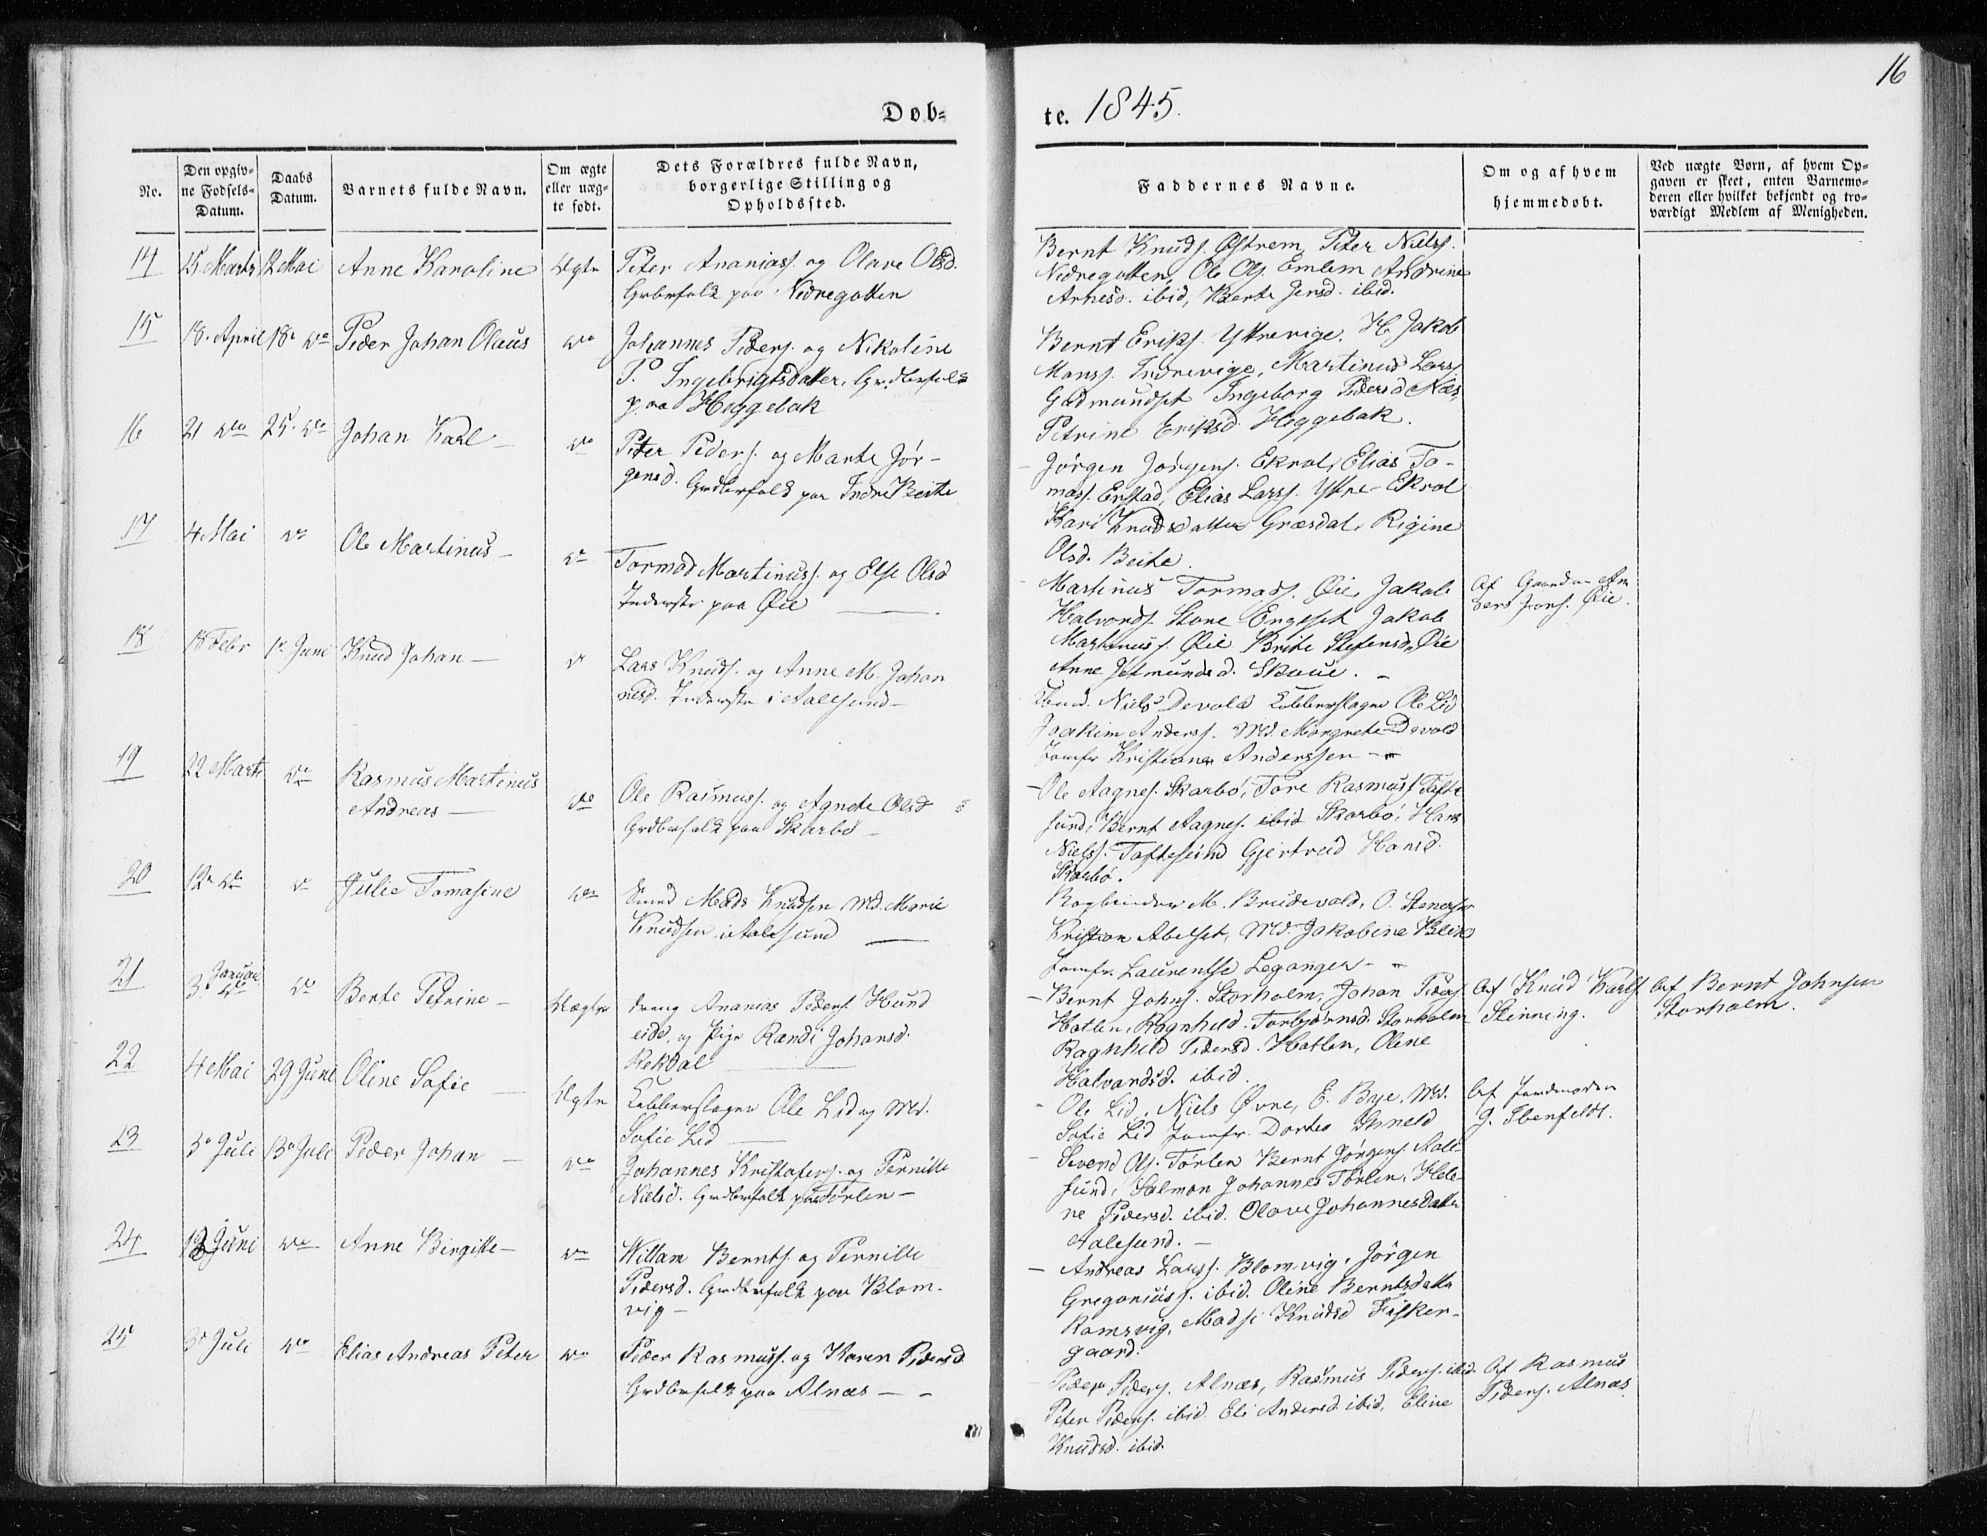 16
Døb-
te. 1845.
No.
Den opgiv-
ne Fødsels-
Datum.
Daabs
Datum.
Barnets fulde Navn.
Om ægte
eller uæg-
te født.
Dets Forældres fulde Navn,
borgerlige Stilling og
Opholdssted.
Faddernes Navne.
Om og af hvem
hjemmedøbt.
Ved uægte Børn, af hvem Op-
gaven er skeet, enten Barnemo-
deren eller hvilket bekjendt og tro-
værdigt Medlem af Menigheden.
14 25 Marts 12 Mai Anne Karoline Ægte
Peter Ananiass. og Olave Olsd.
Grdbrfolk paa Nedregotten
Bernt Knuds. Østrem, Peter Niels.
Nedregotten, Ole Ols. Emlem Andrine
Arnesd. ibid, Berte Jensd. ibid.
15 18. April 18. do Peder Johan Olaus do
Johannes Peders. og Nikoline
P. Ingebrigtsdatter, Grdbrfolk
paa Heggebak
Bernt Eriks. Yttrevige, H. Jakob
Monss. Indrevige, Martinus Larss.
Gudmundset Ingeborg Pedersd Næs,
Petrine Eriksd. Heggebak.
16 21 do 25. do Johan Karl - do
Peter Peders. og Marte Jør-
gensd. Grdbrfolk paa Indre Beite
- Jørgen Jørgens. Ekrol, Elias To-
mass. Erstad, Elias Larss. Yttre-Ekrol
Kari Knudsdatter Græsdal, Rigine
Olsd. Beite.
17 4 Mai do Ole Martinus - do
Tormod Martinuss. og Else Olsd
Inderste paa Øie
- Martinus Tormods. Øie, Jakob
Halvords. Store Engeset Jakob
Martinuss Øie Brite Stefensd. Øie
Anne Jetmundsd. Skaue. -
Øie.
18 18 Febr 1. Juni Knud Johan - do
Lars Knuds. og Anne M. Johan
nesd. Inderste i Aalesund -
Niels Devold Kobberslager Ole Lid
Joakim Anderss. Md. Margrete Devold
Jomfr Kristiane Anderssen -
19 22 Marts do Rasmus Martinus
Andreas - do
Ole Rasmuss. og Agnete Olsd
Grdbrfolk paa Skarbø -
- Ole Aagnes. Skarbø, Tore Rasmuss Tofte
sund, Bernt Aagnes. ibid Skarbø, Hans
Nielss. Toftesund Gjertrud Hansd.
Skarbø.
20 12. do do Julie Tomasine do
Smed Mads Knudsen Md. Marie
Knudsen i Aalesund
Bogbinder M. Breidevold, O. Stenersen
Kristian Abelset, Md. Jakobine Blix
Jomfr. Laurentse Leganger -
21 3. Januar do do Berte Petrine - Uægte
dreng Ananias Peders. Hund
eide, og Pige Randi Johansd.
Rekdal
- Bernt Johns. Storholm, Johan Peders
Hatlen, Ragnhild Torbjørnsd. Storholm
Ragnhild Pedersd. Hatlen, Olene
Halvardsd. ibid.
Af Knud Karls.
Slinning.
Af Bernt Johnsen
Storholm.
22 4 Mai 29 Juni Oline Sofie Ægte
Kobberslager Ole Lid og Md.
Sofie Lid
- Ole Lid, Niels Øvre, E. Bye, Md.
Sofie Lid Jomfr. Dortea
Af Jordmoder
G. Ibenfeldt.
23 3. Juli 13. Juli Peder Johan - do
Johannes Kristofers. og Pernille
Nilsd. Grdbrfolk paa Tørlen -
- Svend Ols. Tørlen Bernt Jørgens. Aale-
sund, Salmon Johannes Tørlen, Hele-
ne Pedersd. ibid. Olave Johannesdatter
Aalesund. -
24 12 Juni do Anne Birgitte - do
Willam Bernts. og Pernille
Pedersd. Grdbrfolk paa Blom-
vig -
- Andreas Larss. Blomvig, Jørgen
Gregoriuss. ibid. Oline Berntsdatter
Ramsvig, Madsi Knudsd Fisker-
gaard.
25 3. Juli do Elias Andreas Peter do
Peder Rasmuss. og Karen Pedersd
Grdbrfolk paa Alnæs - -
- Peder Peders. Alnæs, Rasmus Peders. ibid.
Peter Peders. ibid. Eli Andersd. ibid, Eline
Knudsd. ibid.
Af Rasmus
Peders. Alnæs.